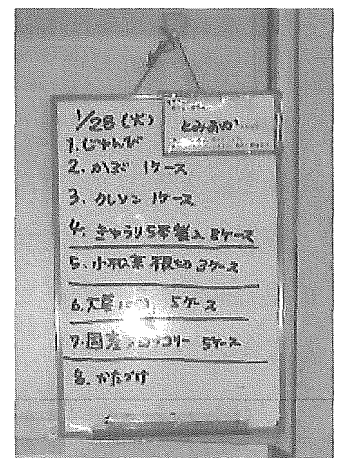 1/28(火)
とみおか
1. じゅんび
2. かぶ 1ケース
3. クレソン 1ケース
4. きゅうり5本 袋入 8ケース
5. 小松菜 根切 3ケース
6. 大 5ケース
7. 国産ブロッコリー 5ケース
8. かたづけ